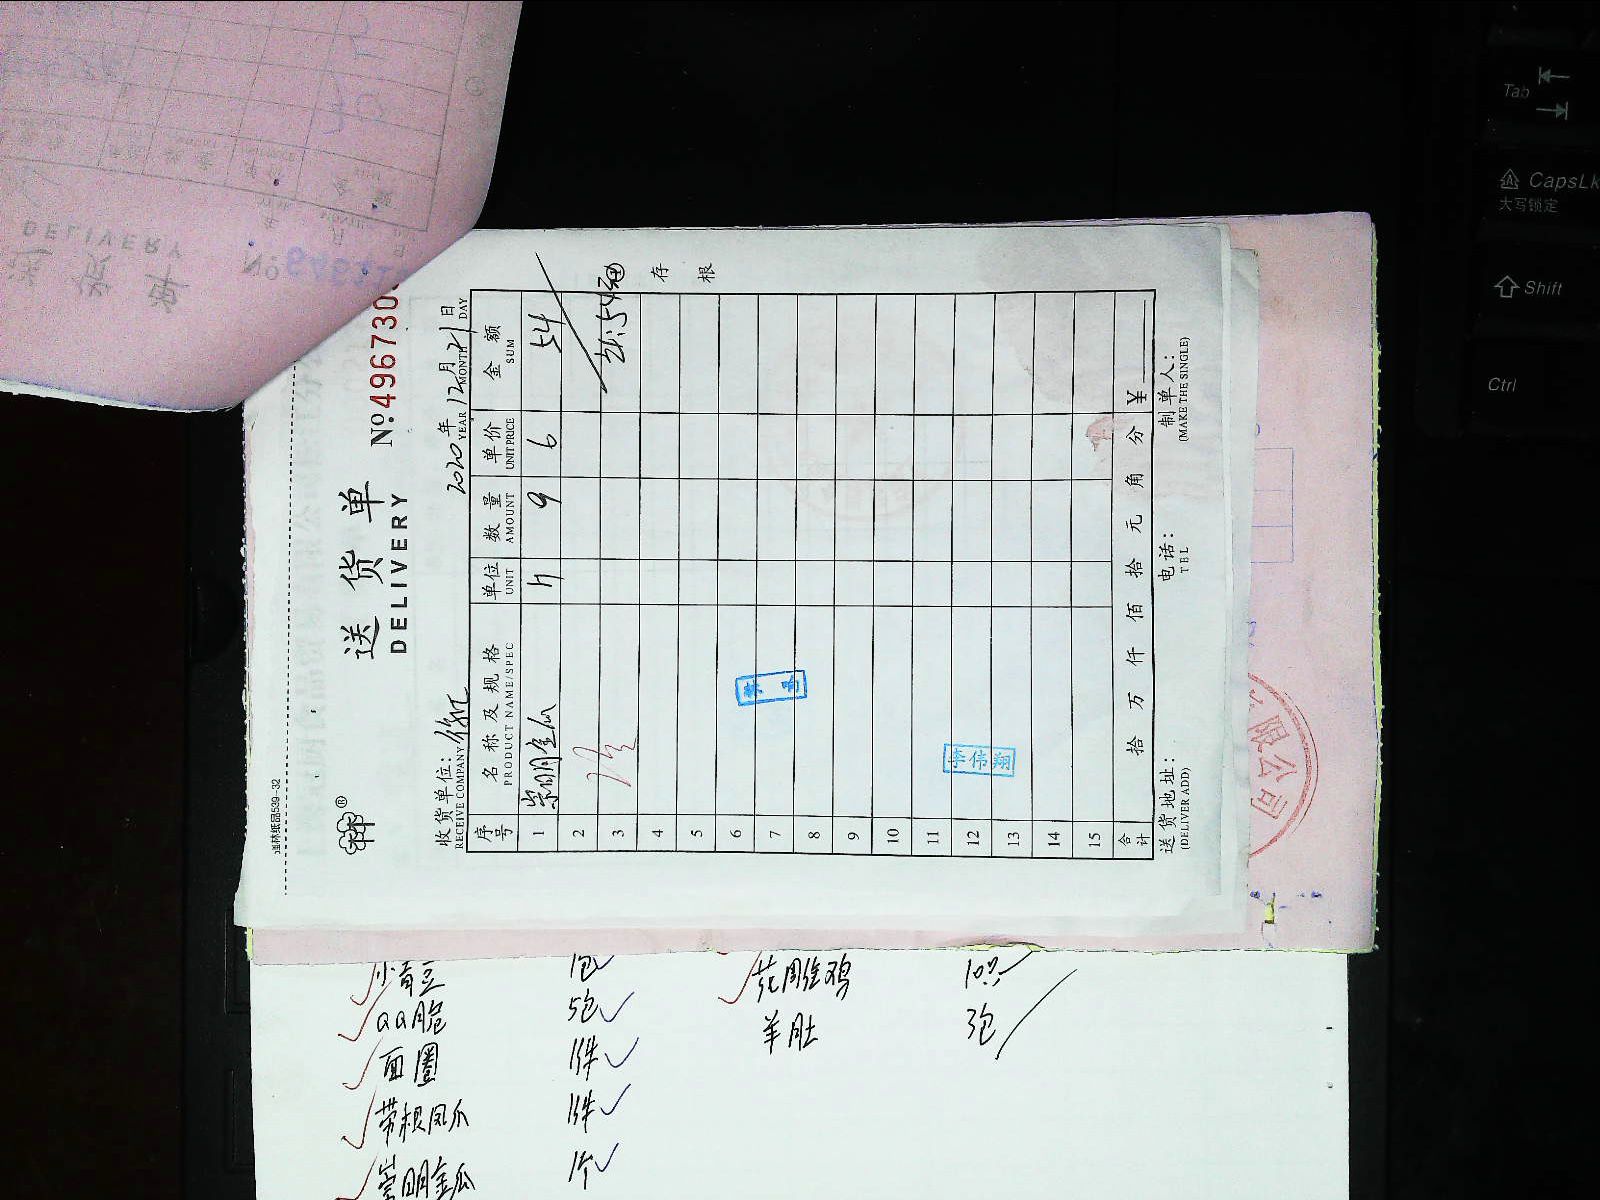 通林纸品539-32
送货单
DELIVERY
№4967730
收货单位：徐汇
RECEIVE COMPANY
2020年12月21日
YEAR MONTH DAY
序号 名称及规格 单位 数量 单价 金额
PRODUCT NAME/SPEC UNIT AMOUNT UNIT PRICE SUM
1 崇明金瓜 9 6 54
2
3
4
5
6
7
8
9
10
11
12
13
14
15
李伟翔
合计 拾 万 仟 佰 拾 元 角 分 ¥
送货地址： 电话： 制单人：
(DELIVER ADD) TEL (MAKE THE SINGLE)
存根
限公司
小青豆 1包
QQ脆 5包
面圈 1件
带根凤爪 1件
崇明金瓜 1个
花雕鸡
羊肚 3包
DELIVERY
送货单
Tab
CapsLk
大写锁定
Shift
Ctrl